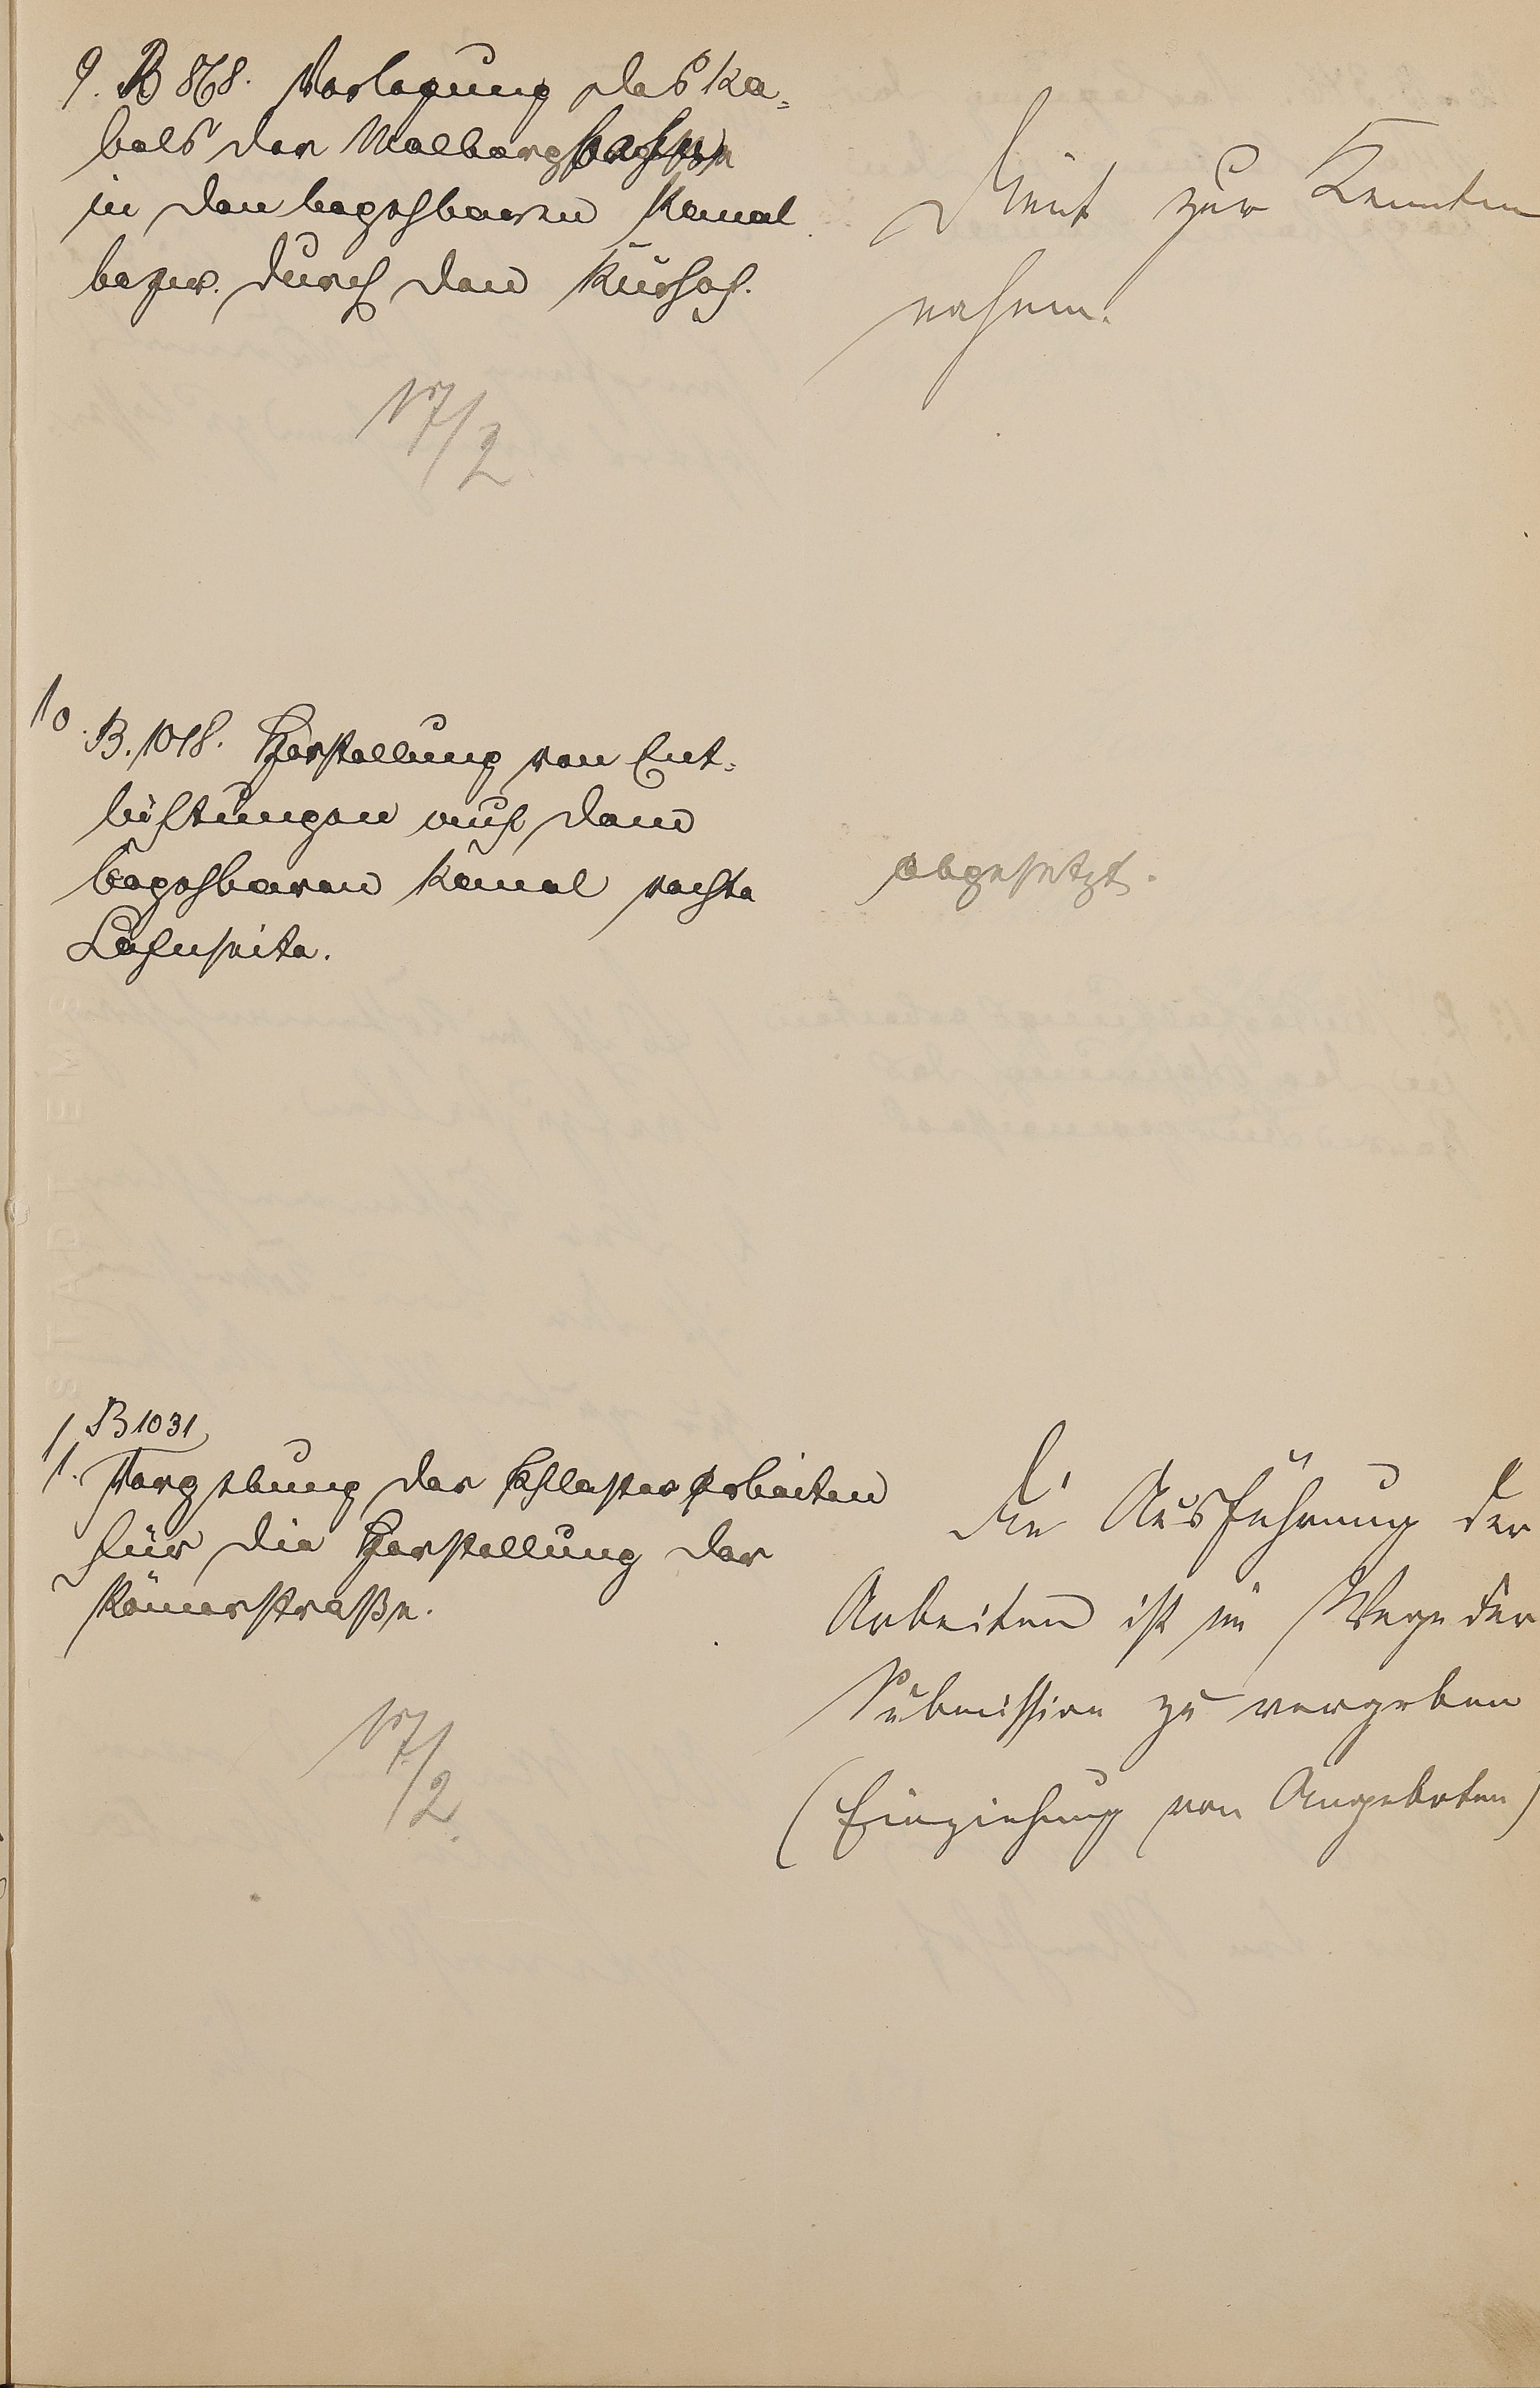 9. B 868. Verlegung des Ka-
bels der Malbergbahn
in den begehbaren Kanal
bezw. durch den Kursaal.
Dient zur Kenntnis
nahme.
17/2
10. B. 1018. Herstellung von Ent-
lüftungen auf dem
begehbaren Kanal rechte
Lahnseite.
abgesetzt.
11. B 1031
Vergebung der Pflasterarbeiten
für die Herstellung der
Römerstraße.
17/2.
Die Ausführung der
Arbeiten ist im Wege der
Submission zu vergeben
(Einziehung von Angeboten)